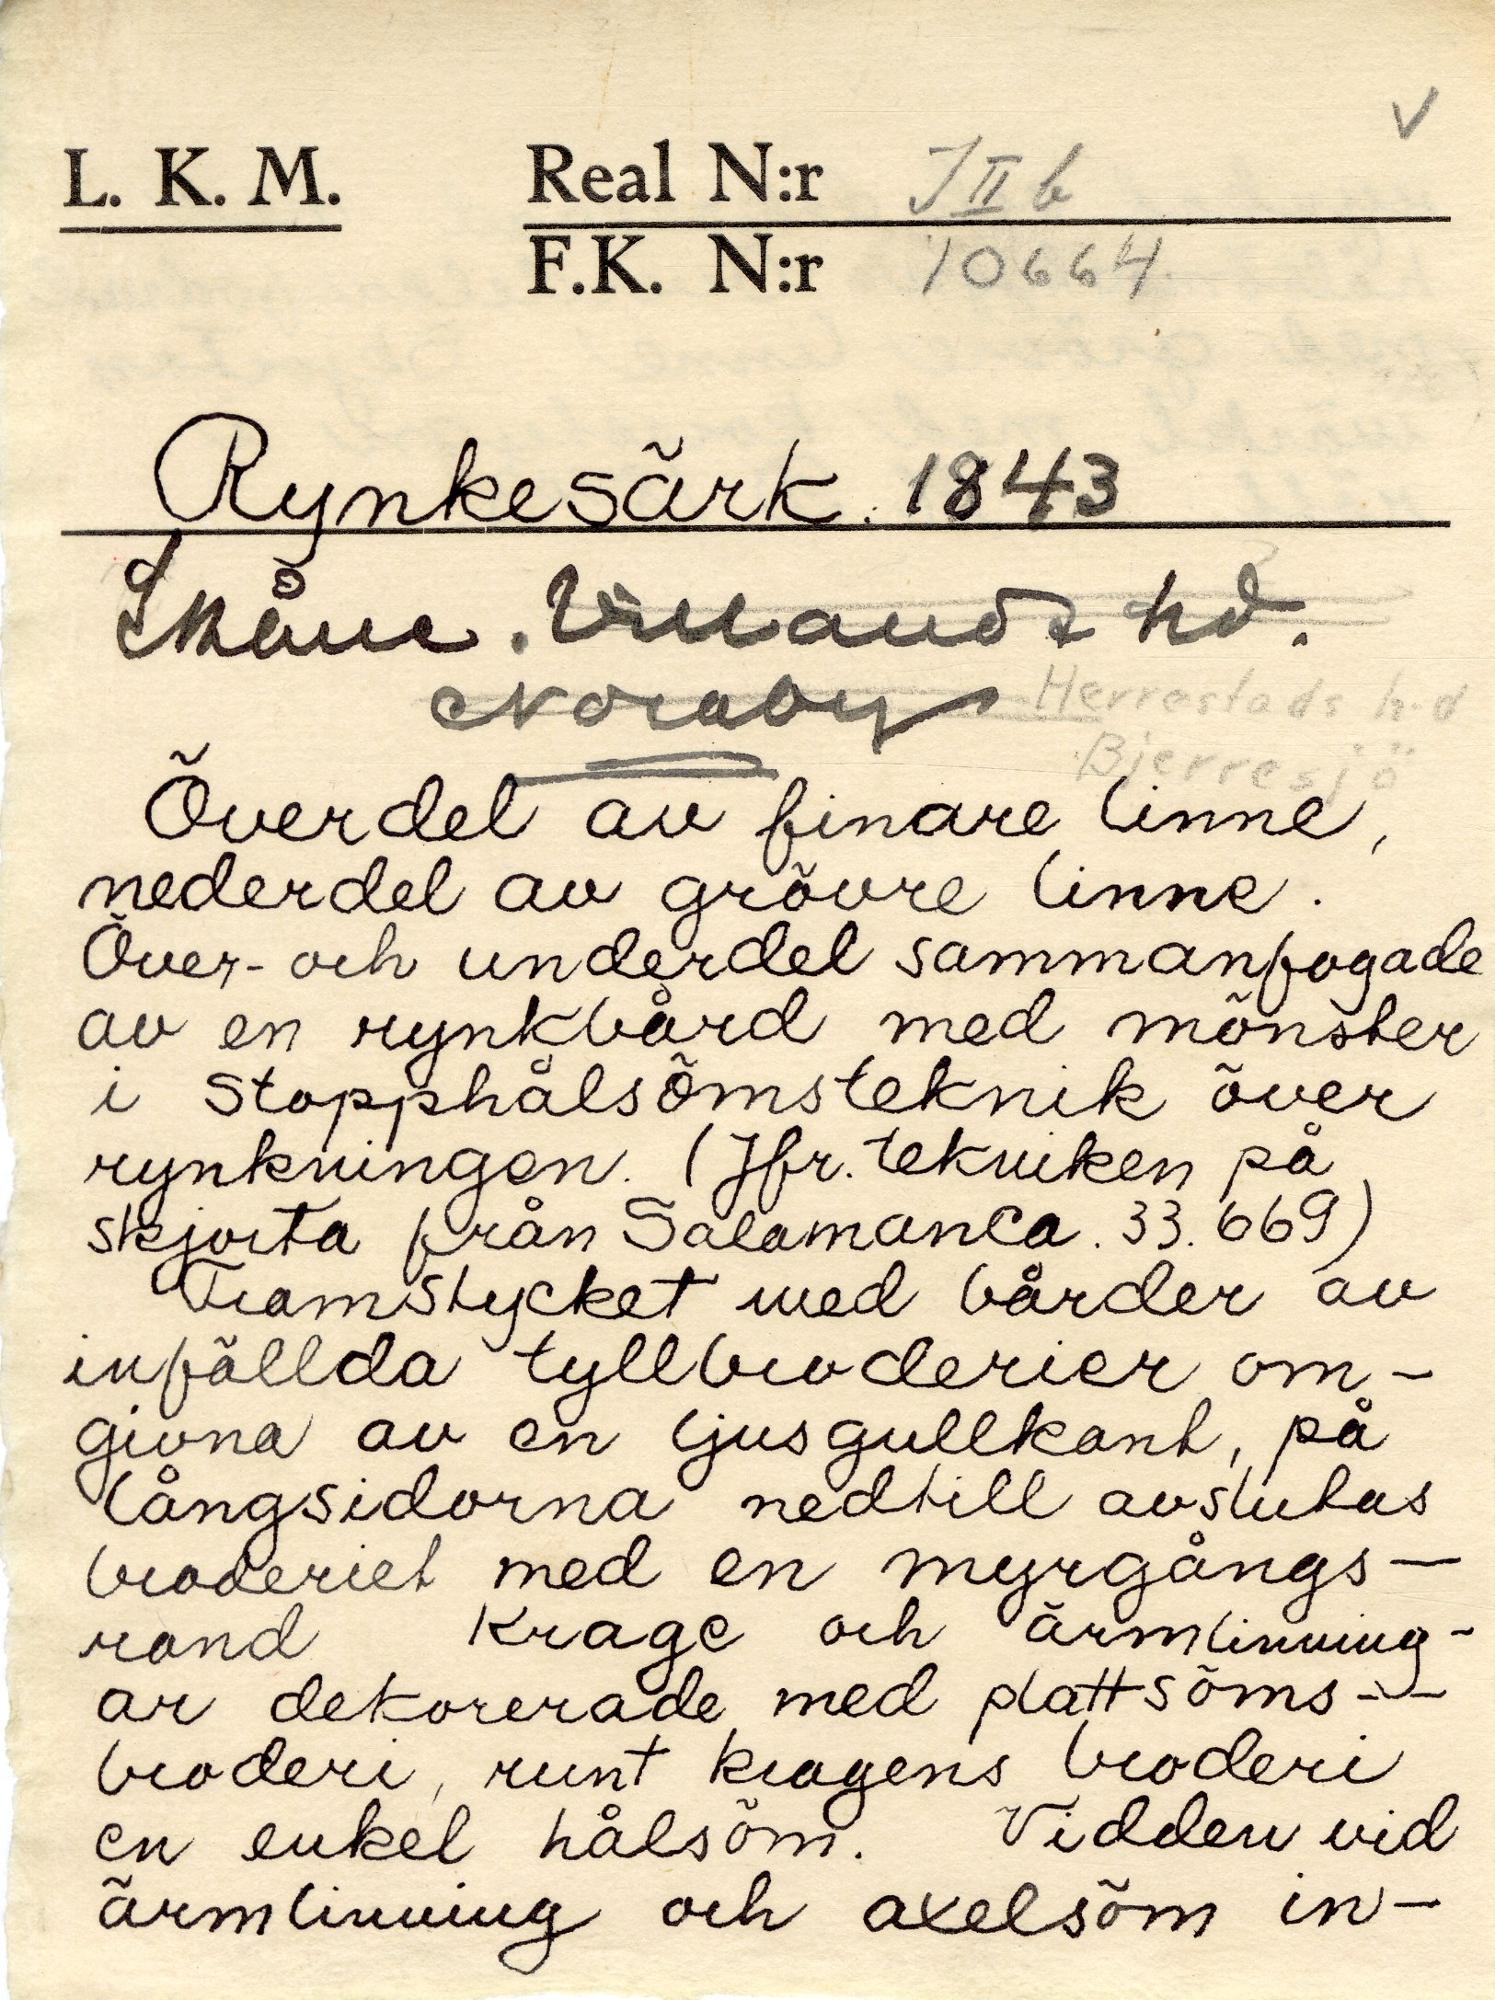 V
L. K. M. Real N:r J II b
F.K. N:r 10664
Rynkesärk. 1843
Skåne. Villands hd.
Norraby Herrestads h-d
Bjerresjö
Överdel av finare linne,
nederdel av grövre linne.
Över- och underdel sammanfogade
av en rynkbård med mönster
i stopphålsömsteknik över
rynkningen. (Jfr. tekniken på
skjorta från Salamanca. 33.669)
Framstycket med bårder av
infällda tyllbroderier om-
givna av en ljusgullkant, på
långsidorna nedtill avslutas
broderiet med en myrgångs-
rand Krage och ärmlinning-
ar dekorerade med plattsöms-
broderi, runt kragens broderi
en enkel hålsöm. Vidden vid
ärmlinning och axelsöm in-